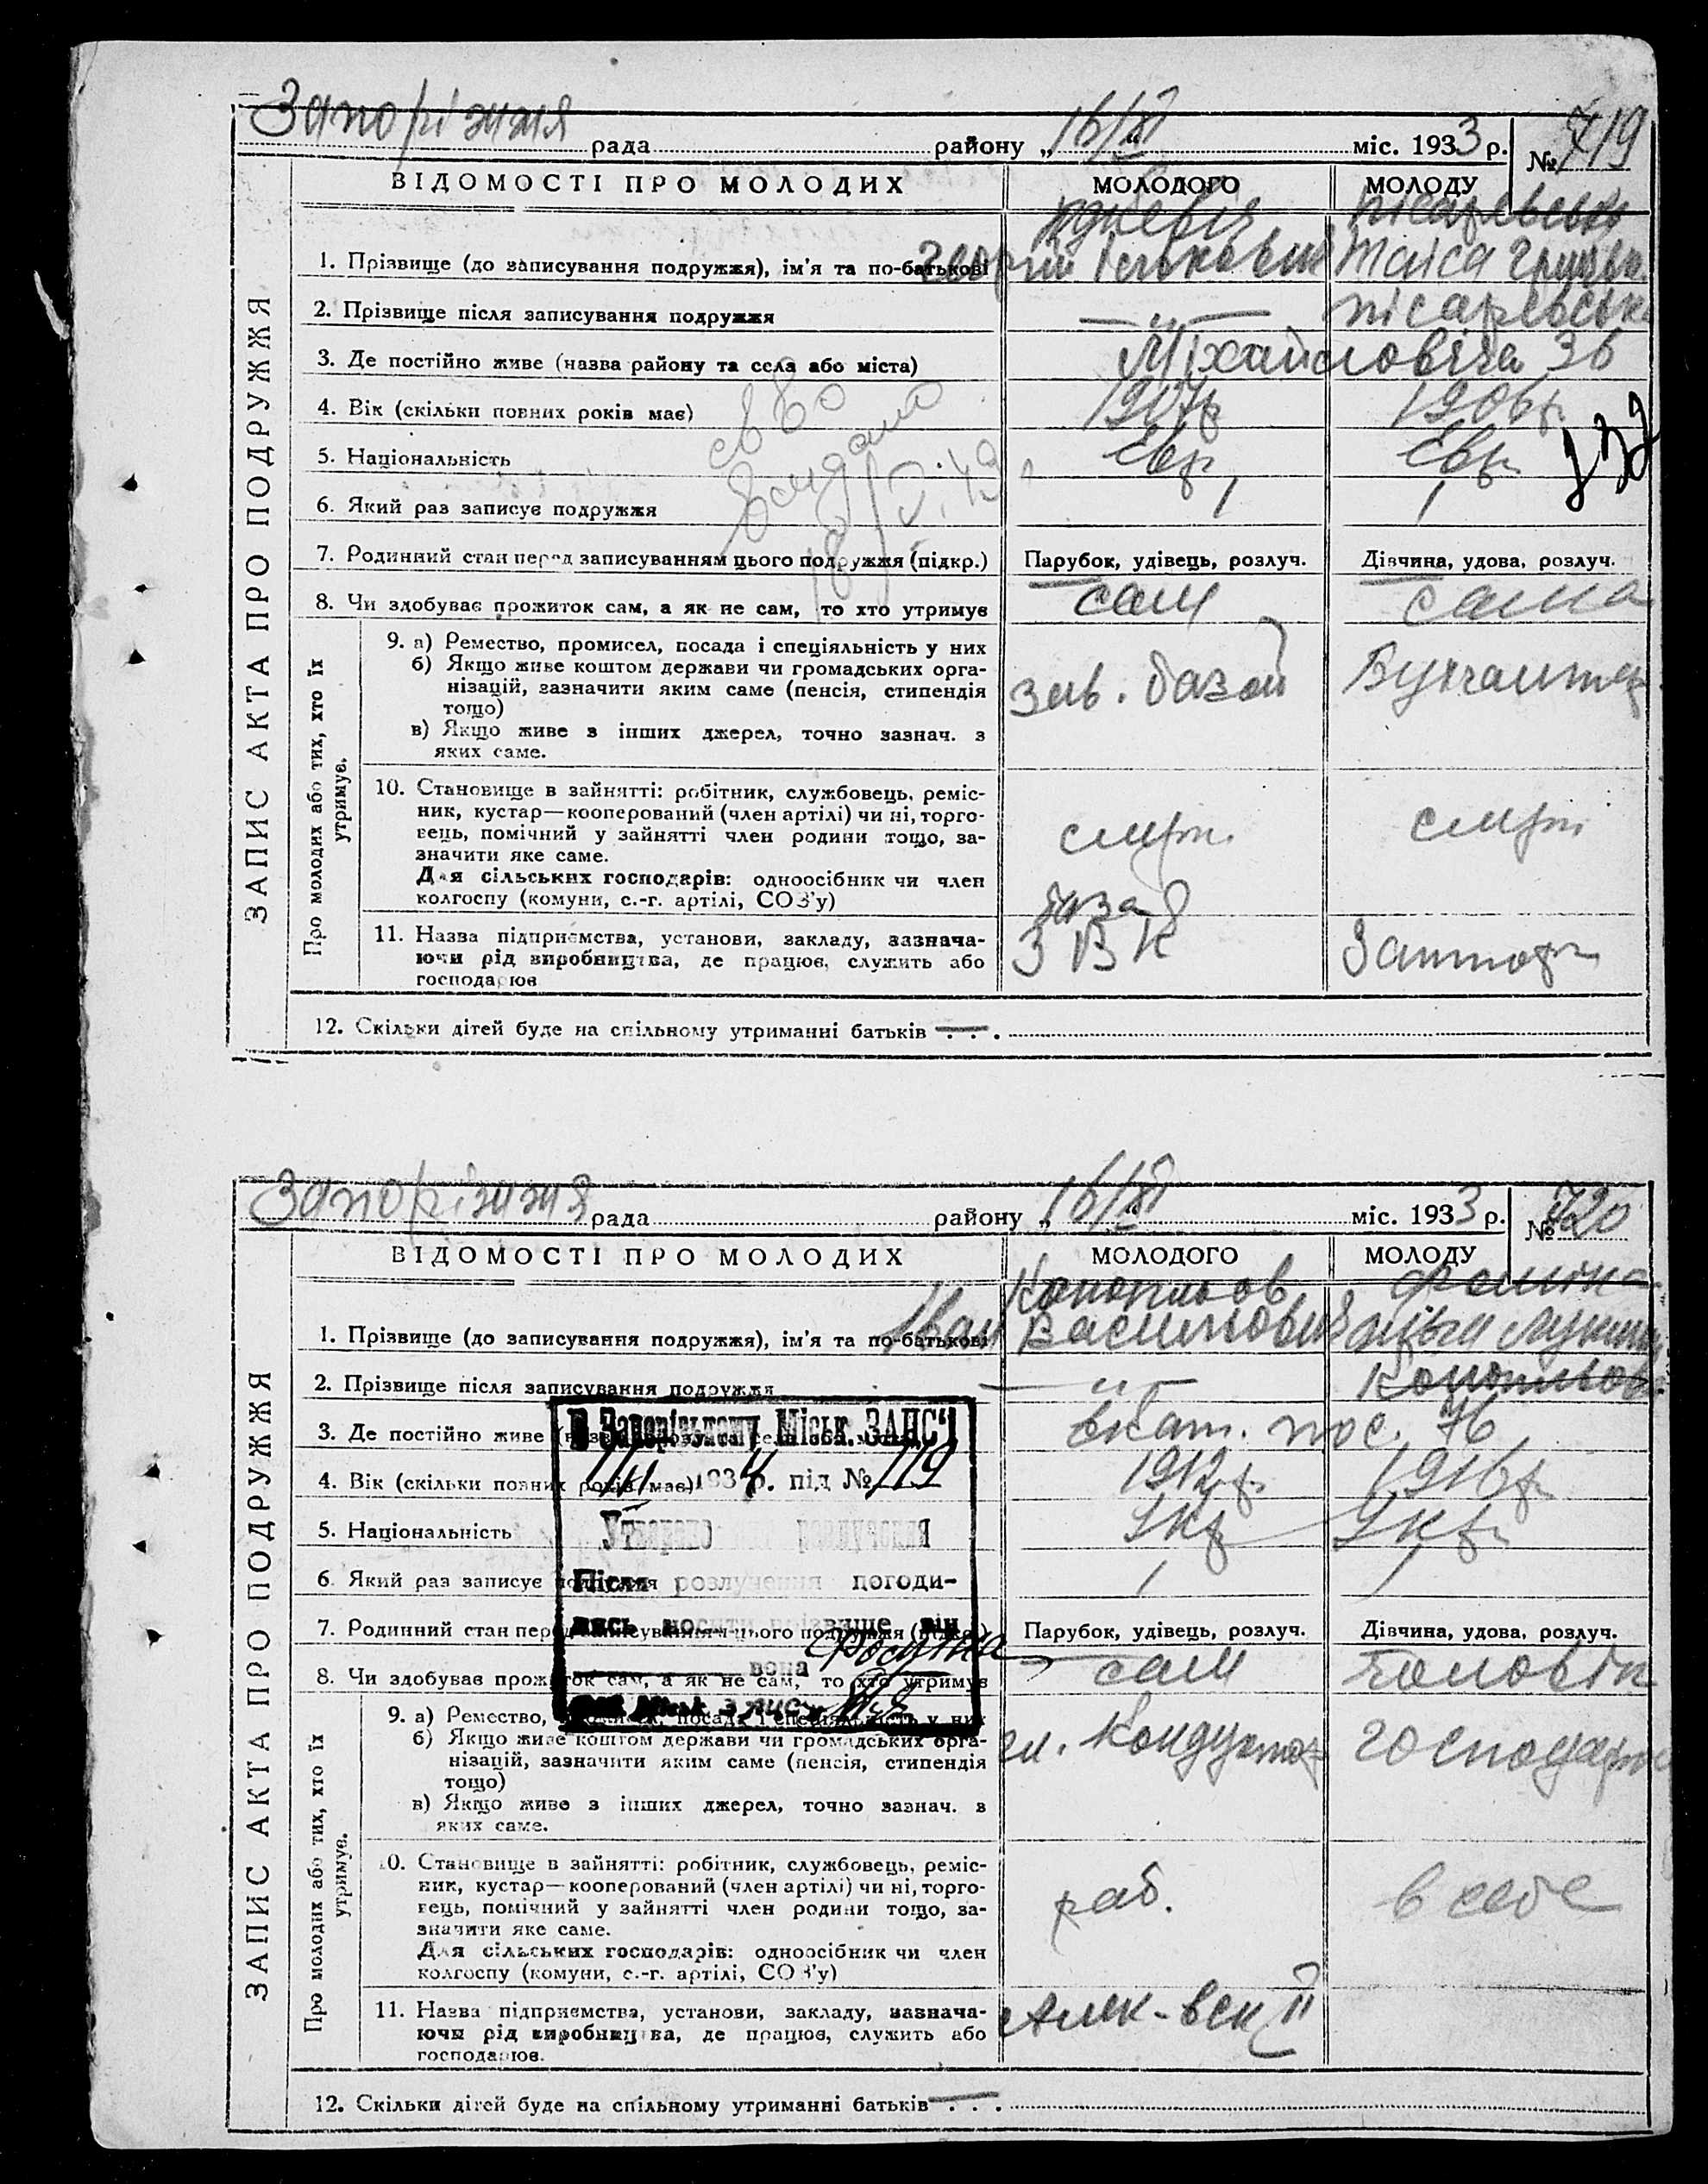 Запоріжжя рада района „ 16/XI “ міс. 1933 р. № 719
ЗАПИС АКТА ПРО ПОДРУЖЖЯ
ВІДОМОСТІ ПРО МОЛОДИХ МОЛОДОГО МОЛОДУ
Пісаревська
1. Прізвище (до записування подружжя), ім'я та по-батькові Георгій Ісакович Таіса
2. Прізвище після записування подружжя — „ — Пісаревська
3. Де постійно живе (назва району та села або міста) Міхайловіча 36
4. Вік (скільки повних років має) 1907р 1906р.
5. Національність Евр Евр
6. Який раз записує подружжя 1 1
7. Родинний стан перед записуванням цього подружжя (підкр.) Парубок, удівець, розлуч. Дівчина, удова, розлуч.
8. Чи здобуває прожиток сам, а як не сам, то хто утримує сам сама
Про молодих або тих, хто їх утримує.
9. а) Ремество, промисел, посада і спеціяльність у них
б) Якщо живе коштом держави чи громадських орга-
нізацій, зазначити яким саме (пенсія, стипендія
тощо)
в) Якщо живе з інших джерел, точно зазнач. з
яких саме.
зав. базой Бухгалтер
10. Становище в зайнятті: робітник, службовець, реміс-
ник, кустар—кооперований (член артілі) чи ні, торго-
вець, помічний у зайнятті член родини тощо, за-
значити яке саме.
Для сільських господарів: одноосібник чи член
колгоспу (комуни, с.-г. артілі, СОЗ'у)
база
11. Назва підприємства, установи, закладу, зазнача-
ючи рід виробництва, де працює, служить або
господарює
12. Скільки дітей буде на спільному утриманні батьків — . . .
Запоріжжя рада району „ 16/XI “ міс. 1933 р. № 720
ЗАПИС АКТА ПРО ПОДРУЖЖЯ
ВІДОМОСТІ ПРО МОЛОДИХ МОЛОДОГО МОЛОДУ
Конопльов
1. Прізвище (до записування подружжя), ім'я та по-батькові Іван Васильович
2. Прізвище після записування подружжя — „ — Конопльова
3. Де постійно живе (назва району та села або міста) пос. 76
4. Вік (скільки повних років має) 1912р. 1916р
5. Національність Укр Укр
6. Який раз записує подружжя 1 1
7. Родинний стан перед записуванням цього подружжя (підкр.) Парубок, удівець, розлуч. Дівчина, удова, розлуч.
8. Чи здобуває прожиток сам, а як не сам, то хто утримує сам чоловік
В Запорізькому Міськ. ЗАГС'і
1934 р. під № 119
Після розлучення погоди-
лись носити прізвище він
вона
Про молодих або тих, хто їх утримує.
9. а) Ремество, промисел, посада і спеціяльність у них
б) Якщо живе коштом держави чи громадських орга-
нізацій, зазначити яким саме (пенсія, стипендія
тощо)
в) Якщо живе з інших джерел, точно зазнач. з
яких саме.
гл. Кондуктор
10. Становище в зайнятті: робітник, службовець, реміс-
ник, кустар—кооперований (член артілі) чи ні, торго-
вець, помічний у зайнятті член родини тощо, за-
значити яке саме.
Для сільських господарів: одноосібник чи член
колгоспу (комуни, с.-г. артілі, СОЗ'у)
раб. в себе
11. Назва підприємства, установи, закладу, зазнача-
ючи рід виробництва, де працює, служить або
господарює.
Алек-вск II
12. Скільки дітей буде на спільному утриманні батьків — . . .